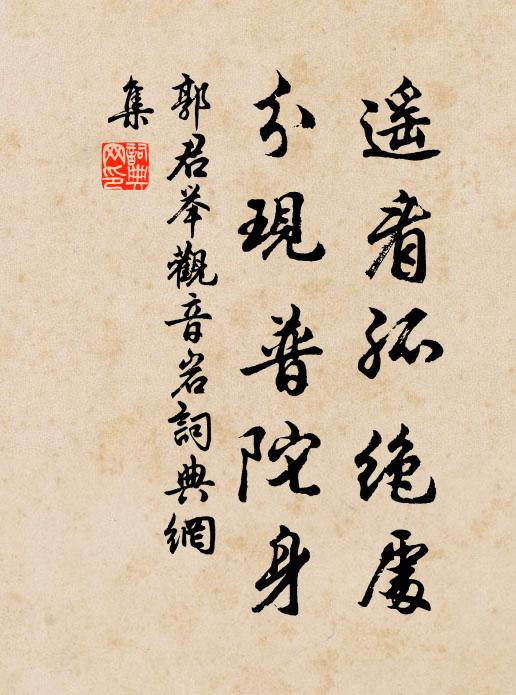 遥看孤絶處
分現普陀身
郭君举觀音岩詞典網
集
詞典網印